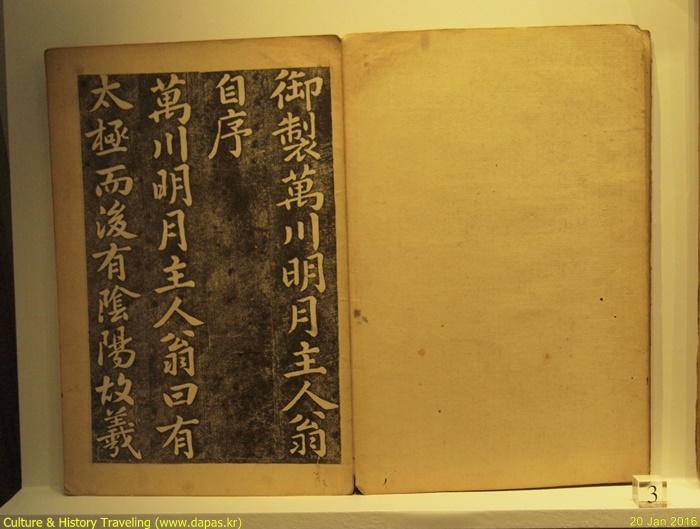 御製萬川明月主人翁
自序
萬川明月主人翁曰有
太極而後有陰陽故羲
3
Culture & History Traveling (www.dapas.kr)
20 Jan 2016